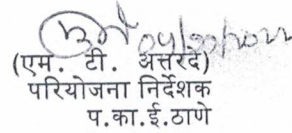 (एम. टी. अत्तरदे)
परियोजना निर्देशक
प.का.ई.ठाणे